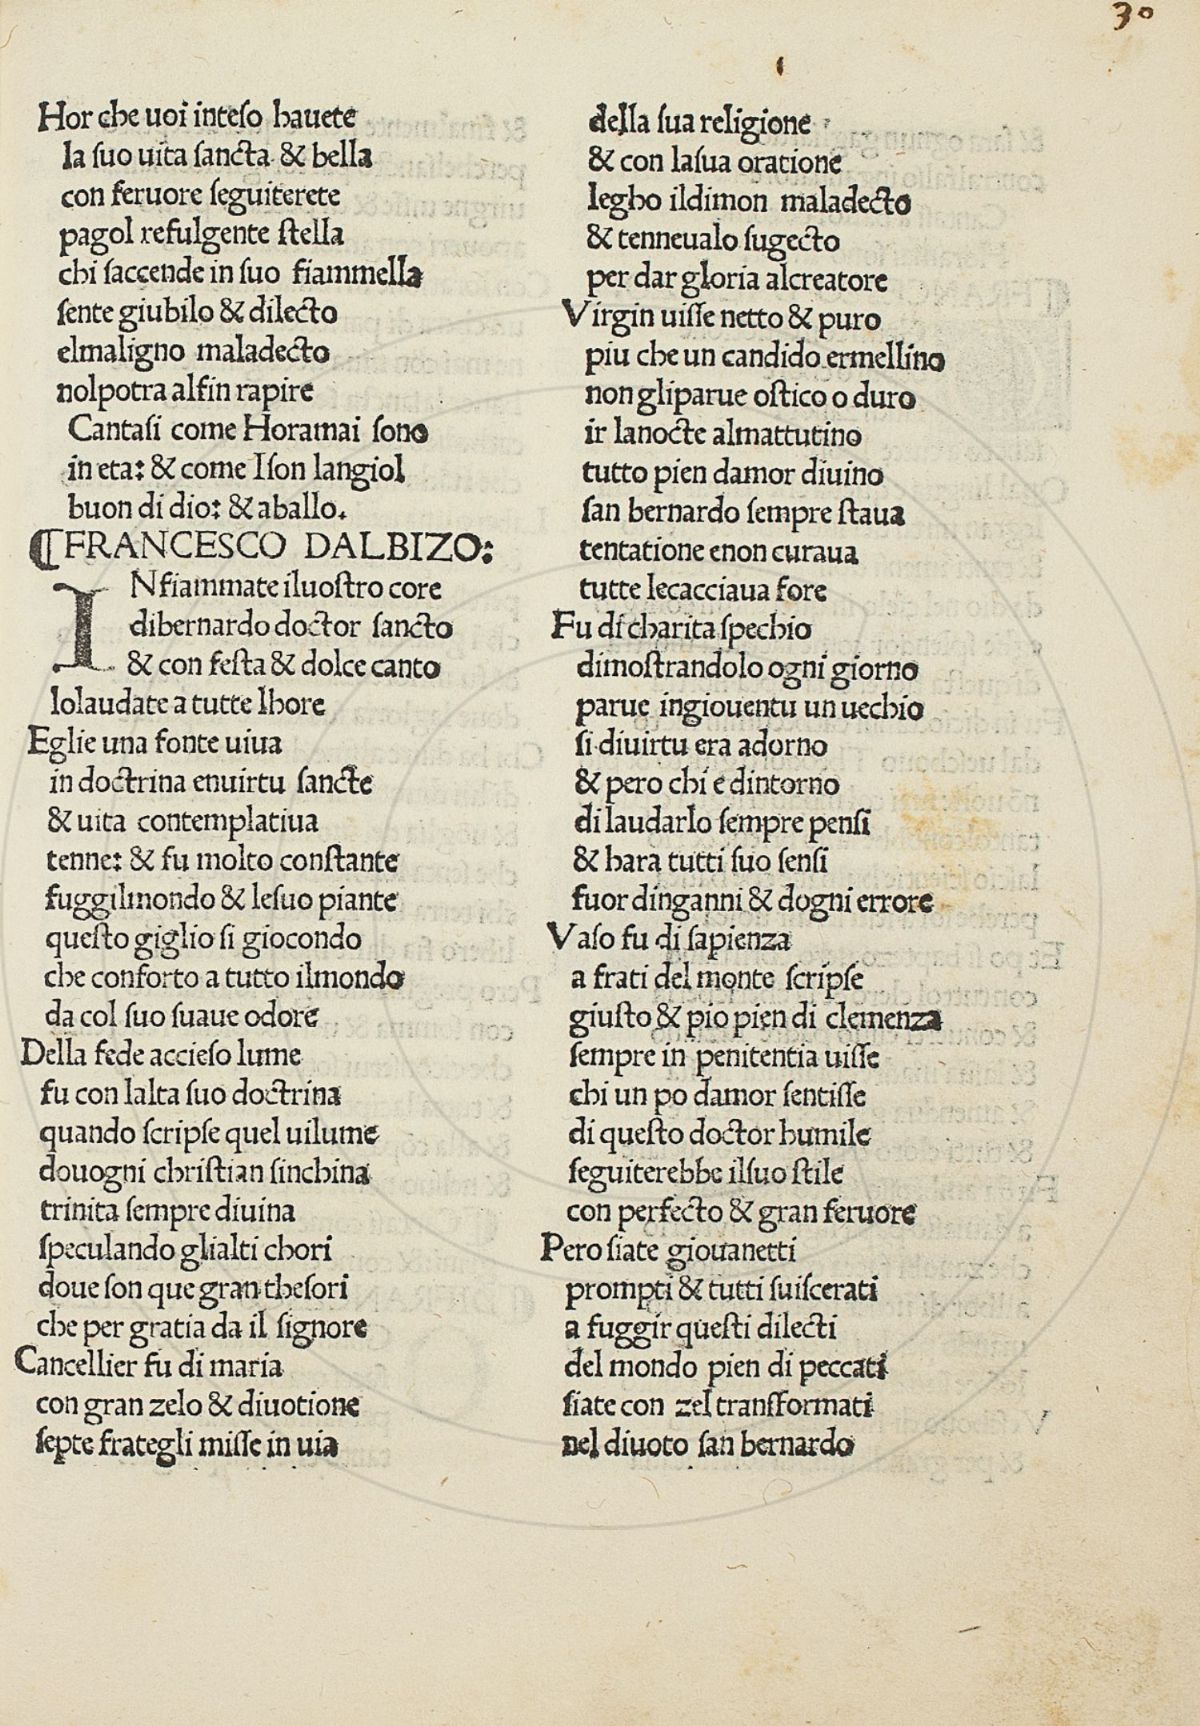 30
Hor che uoi inteso hauete
la suo uita sancta & bella
con feruore seguiterete
pagol refulgente stella
chi saccende in suo fiammella
sente giubilo & dilecto
elmaligno maladecto
nolpotra alfin rapire
Cantasi come Horamai sono
in eta: & come Ison langiol
buon di dio: & aballo.
¶FRANCESCO DALBIZO:
INfiammate iluostro core
dibernardo doctor sancto
& con festa & dolce canto
lolaudate a tutte lhore
Eglie una fonte uiua
in doctrina enuirtu sancte
& uita contemplatiua
tenne: & fu molto constante
fuggilmondo & lesuo piante
questo giglio si giocondo
che conforto a tutto ilmondo
da col suo suaue odore
Della fede accieso lume
fu con lalta suo doctrina
quando scripse quel uilume
douogni christian sinchina
trinita sempre diuina
speculando glialti chori
doue son que gran thesori
che per gratia da il signore
Cancellier fu di maria
con gran zelo & diuotione
septe frategli misse in uia
della sua religione
& con lasua oratione
legho ildimon maladecto
& tenneualo sugecto
per dar gloria alcreatore
Virgin uisse netto & puro
piu che un candido ermellino
non gliparue ostico o duro
ir lanocte almattutino
tutto pien damor diuino
san bernardo sempre staua
tentatione enon curaua
tutte lecacciaua fore
Fu di charita spechio
dimostrandolo ogni giorno
parue ingiouentu un uechio
si diuirtu era adorno
& pero chi e dintorno
di laudarlo sempre pensi
& hara tutti suo sensi
fuor dinganni & dogni errore
Vaso fu di sapienza
a frati del monte scripse
giusto & pio pien di clemenza
sempre in penitentia uisse
chi un po damor sentisse
di questo doctor humile
seguiterebbe ilsuo stile
con perfecto & gran feruore
Pero siate giouanetti
prompti & tutti suiscerati
a fuggir questi dilecti
del mondo pien di peccati
siate con zel transformati
nel diuoto san bernardo